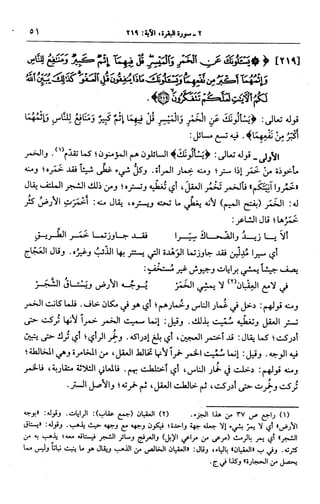 ٢ - سورة البقرة، الآية: ٢١٩
٥١
[٢١٩] ﴿۞ يَسْـَٔلُونَكَ عَنِ ٱلْخَمْرِ وَٱلْمَيْسِرِ قُلْ فِيهِمَآ إِثْمٌ كَبِيرٌ وَمَنَـٰفِعُ لِلنَّاسِ
وَإِثْمُهُمَآ أَكْبَرُ مِن نَّفْعِهِمَا وَيَسْـَٔلُونَكَ مَاذَا يُنفِقُونَ قُلِ ٱلْعَفْوَ كَذَٰلِكَ يُبَيِّنُ ٱللَّهُ
لَكُمُ ٱلْـَٔايَـٰتِ لَعَلَّكُمْ تَتَفَكَّرُونَ ﴿٢١٩﴾﴾.
قوله تعالى: ﴿يَسْأَلُونَكَ عَنِ الْخَمْرِ وَالْمَيْسِرِ قُلْ فِيهِمَا إِثْمٌ كَبِيرٌ وَمَنَافِعُ لِلنَّاسِ وَإِثْمُهُمَا
أَكْبَرُ مِنْ نَفْعِهِمَا﴾. فيه تسع مسائل:
الأولى - قوله تعالى: ﴿يَسْأَلُونَكَ﴾ السائلون هم المؤمنون؛ كما تقدم(١). والخمر
مأخوذة من خَمَر إذا ستر؛ ومنه خِمار المرأة. وكلّ شيء غطّى شيئاً فقد خَمَره؛ ومنه
«خَمِّروا آنيتكم» فالخمر تَخمُر العقل، أي تُغطيه وتستره؛ ومن ذلك الشجر الملتف يقال
له: الخَمَر (بفتح الميم) لأنه يغطي ما تحته ويستره، يقال منه: أخمرت الأرض كثر
خَمَرها؛ قال الشاعر:
ألا يا زيدُ والضحاكَ سِيرا فقد جاوزتما خَمَر الطريق
أي سِيرا مُدِلّين فقد جاوزتما الوَهْدة التي يستتر بها الذئب وغيره. وقال العجّاج
يصف جيشاً يمشي برايات وجيوش غير مستخفٍ:
في لامع العِقبان(٢) لا يمشي الخَمَرْ يُوجِّه الأرضَ ويَستاق الشّجَرْ
ومنه قولهم: دخل في غُمار الناس وخُمارهم؛ أي هو في مكان خاف. فلما كانت الخمر
تستر العقل وتغطيه سُمّيت بذلك. وقيل: إنما سميت الخمر خمراً لأنها تُركت حتى
أدركت؛ كما يقال: قد اختمر العجين، أي بلغ إدراكه. وخُمِر الرأي؛ أي تُرك حتى يتبيّن
فيه الوجه. وقيل: إنما سُمّيت الخمر خمراً لأنها تخالط العقل، من المخامرة وهي المخالطة؛
ومنه قولهم: دخلت في خُمار الناس، أي أختلطت بهم. فالمعاني الثلاثة متقاربة، فالخمر
تُركت وخُمرت حتى أدركت، ثم خالطت العقل، ثم خمرته؛ والأصل الستر.
(١) راجع ص ٣٧ من هذا الجزء. (٢) العقبان (جمع عقاب): الرايات. وقوله: «يوجه
الأرض» أي لا يمر بشيء إلا جعله جهة واحدة؛ فيكون وجهه مع وجهه حيث يذهب. وقوله: «يستاق
الشجر» أي يمر بالرمث (مرعى من مراعي الإبل) والعرفج وسائر الشجر فيستاقه معه؛ يذهب به من
كثرته. وفي ب «العقيان» بالياء، وقال: «العقيان الخالص من الذهب ويقال هو ما ينبت نباتاً وليس مما
يحصل من الحجارة» وكذا في ج.